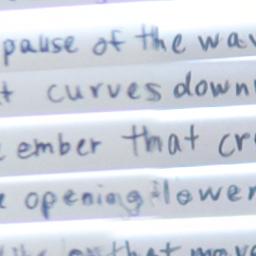 pause of the wav
t curves down
ember that cr
e opening flower
that move